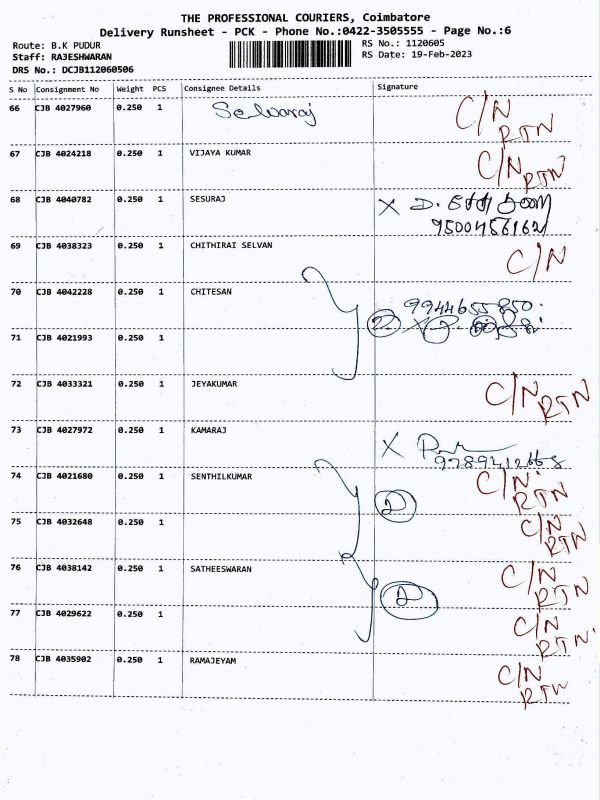 THE PROFESSIONAL COURIERS, Coimbatore
Delivery Runsheet - PCK - Phone No.:0422-3505555 - Page No.:6
Route: B.K PUDUR RS No.: 1120605
Staff: RAJESHWARAN RS Date: 19-Feb-2023
DRS No.: DCJB112060506
S No Consignment No Weight PCS Consignee Details Signature
66 CJB 4027960 0.250 1 Selvaraj C/N
RTN
67 CJB 4024218 0.250 1 VIJAYA KUMAR C/N
RTN
68 CJB 4040782 0.250 1 SESURAJ X D.
9500456162
69 CJB 4038323 0.250 1 CHITHIRAI SELVAN C/N
70 CJB 4042228 0.250 1 CHITESAN 9944655850.
2
71 CJB 4021993 0.250 1
72 CJB 4033321 0.250 1 JEYAKUMAR C/N
RTN
73 CJB 4027972 0.250 1 KAMARAJ X
74 CJB 4021680 0.250 1 SENTHILKUMAR C/N
RTN
2
75 CJB 4032648 0.250 1 C/N
RTN
76 CJB 4038142 0.250 1 SATHEESWARAN C/N
RTN
2
77 CJB 4029622 0.250 1 C/N
RTN
78 CJB 4035902 0.250 1 RAMAJEYAM C/N
RTN